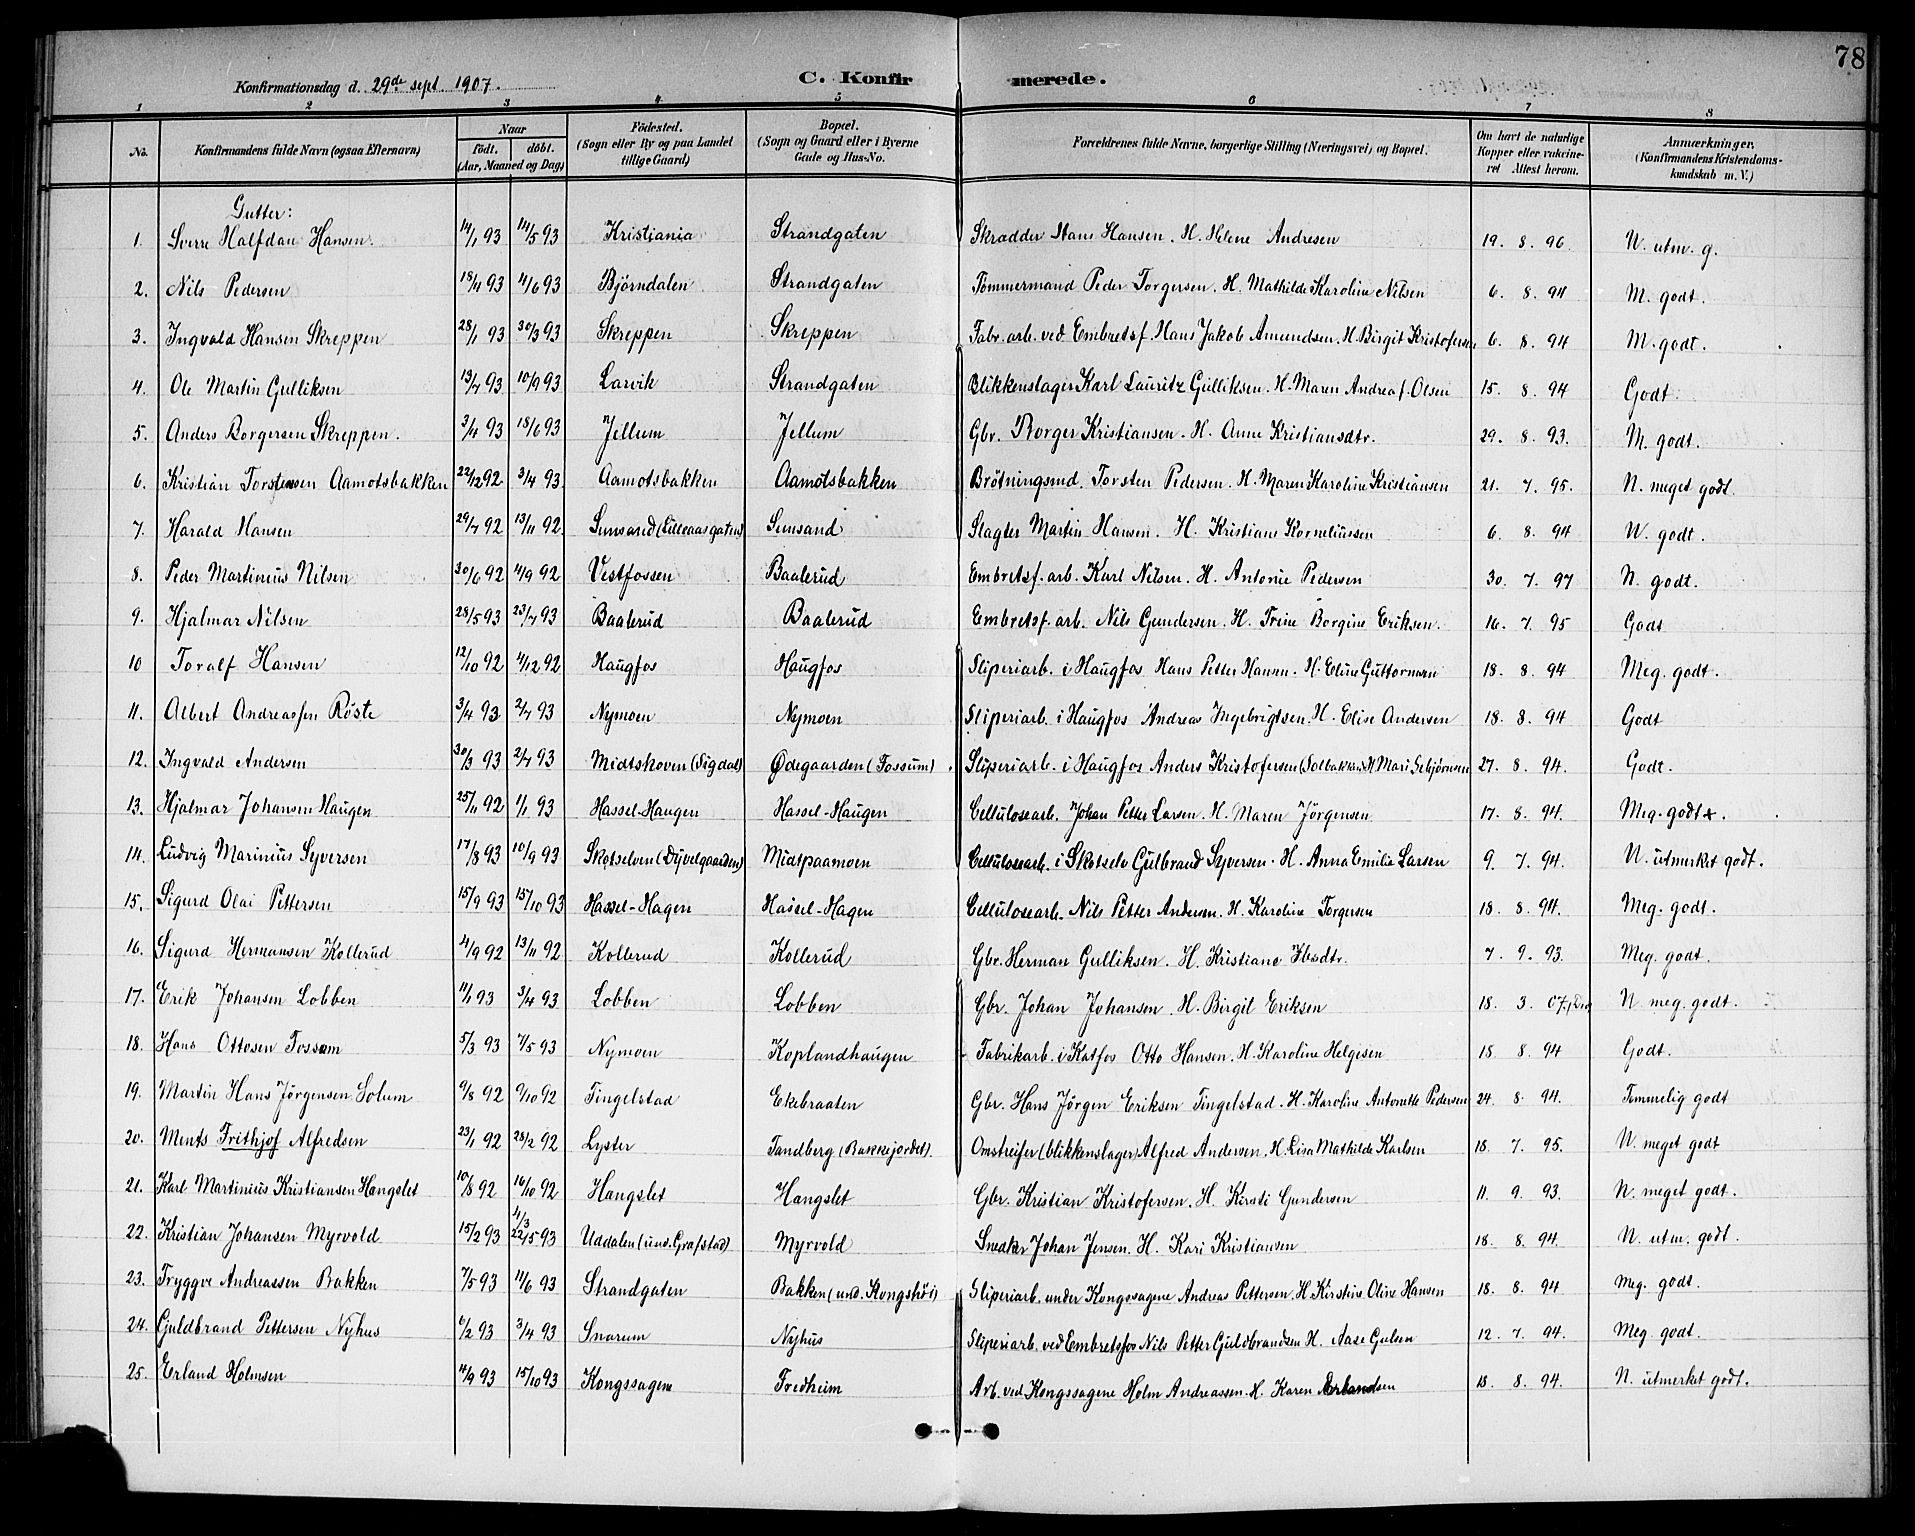 78
Konfirmationsdag d. 29de sept. 1907.
C. Konfirmerede.
1 2 3 4 5 6 7 8
No. Konfirmandens fulde Navn (ogsaa Efternavn) Naar født. døbt. (Aar, Maaned og Dag) Fødested. (Sogn eller By og paa Landet tillige Gaard) Bopæl. (Sogn og Gaard eller i Byerne Gade og Hus-No. Forældrenes fulde Navne, borgerlige Stilling (Næringsvei) og Bopæl. Om havt de naturlige Kopper eller vakcineret Attest herom. Anmærkninger. (Konfirmandens Kristendomskundskab m. V.)
Gutter:
1. Sverre Halfdan Hansen. 14/1 93 14/5 93 Kristiania Strandgaten Skradder Hans Hansen. H. Helene Andresen 19. 8. 96. N. utm. g.
2. Nils Pedersen 18/4 93 4/6 93 Bjørndalen Strandgaten Tømmermand Peder Torgersen. H. Mathilde Karoline Nilsen 6. 8. 94 M. godt.
3. Ingvald Hansen Skreppen 28/1 93 30/3 93 Skreppen Skreppen Fabr. arb. ved Embretsf. Hans Jakob Amundsen. H. Birgit Kristofersen 6. 8. 94 M. godt.
4. Ole Martin Gulliksen 13/7 93 10/9 93 Larvik Strandgaten Blikkenslager Karl Lauritz Gulliksen. H. Maren Andrea f. Olsen 15. 8. 94 Godt.
5. Anders Borgersen Skreppen. 3/4 93 18/6 93 Jellum Jellum Gbr. Borger Kristiansen. H. Anne Kristiansdtr. 29. 8. 93. M. godt.
6. Kristian Torstensen Aamotsbakken 22/12 92 3/4 93. Aamotsbakken Aamotsbakken Brøtningsmd. Torsten Pedersen. H. Maren Karoline Kristiansen 21. 7. 95. N. meget godt.
7. Harald Hansen 29/7 92 13/11 92. Semsand (Lilleaasgaten) Semsand Slagter Martin Hansen. H. Kristiane Korneliussen 6. 8. 94 N. godt.
8. Peder Martinius Nilsen 30/6 92 4/9 92 Vestfossen Baalerud Embretsf. arb. Karl Nilsen. H. Antonie Pedersen 30. 7. 97 N. godt.
9. Hjalmar Nilsen 28/5 93 23/7 93 Baalerud Baalerud Embretsf. arb. Nils Gundersen. H. Trine Borgine Eriksen. 16. 7. 95 Godt
10 Toralf Hansen 12/10 92 4/12 92 Haugfos Haugfos Sliperiarb. i Haugfos Hans Petter Hansen. H. Eline Guttormsen 18. 8. 94 Meg. godt.
11. Albert Andreassen Røste 3/4 93 2/7 93 Nymoen Nymoen Sliperiarb. i Haugfos Andreas Ingebrigtsen. H. Elise Andersen 18. 8. 94 Godt
12. Ingvald Andersen 30/3 93 2/7 93 Midtskoven (Sigdal) Ødegaarden (Fossum). Sliperiarb. i Haugfos Anders Kristofersen (Solbakken) H. Mari 27. 8. 94. Godt.
13. Hjalmar Johansen Haugen 25/11 92 1/1 93 Hassel-Haugen Hassel-Haugen Cellulosearb. Johan Petter Larsen. H. Maren Jørgensen 17. 8. 94. Meg. godt.
14. Ludvig Marinius Syversen 17/8 93 10/9 93 Skotselven (Dyvelgaarden) Midtpaamoen Cellulosearb. i Skotselv Gulbrand Syversen. H. Anna Emilie Larsen 9. 7. 94. N. utmerket godt.
15. Sigurd Olai Pettersen 15/9 93 15/10 93 Hassel-Hagen Hassel-Hagen Cellulosearb. Nils Petter Andersen. H. Karoline Torgersen 18. 8. 94. Meg. godt.
16. Sigurd Hermansen Kollerud 4/9 92 13/11 92 Kollerud Kollerud Gbr. Herman Gulliksen. H. Kristiane 7. 9. 93. Meg. godt.
17. Erik Johansen Lobben 11/1 93 3/4 93 Lobben Lobben Gbr. Johan Johansen. H. Birgit Eriksen 18. 3. 07. N. meg. godt.
18. Hans Ottosen Fossum 5/3 93 7/5 93 Nymoen Koplandhaugen Fabrikarb. i Katfos Otto Hansen. H. Karoline Helgesen 18. 8. 94 Godt.
19. Martin Hans Jørgensen Solum 9/8 92 9/10 92 Tingelstad Ekebraaten Gbr. Hans Jørgen Eriksen Tingelstad. H. Karoline Antonette Pedersen 24. 8. 94. Temmelig godt
20. Ments Frithjof Alfredsen 23/1 92 28/2 92 Lyster Tandberg (Bakkejordet). Omstreifer (blikkenslager) Alfred Andersen. H. Lisa Mathilde Karlsen 18. 7. 95. N. meget godt
21. Karl Martinius Kristiansen Hangslet 10/8 92 16/10 92 Hangslet Hangslet Gbr. Kristian Kristofersen. H. Kirsti Gundersen 11. 9. 93. N. meget godt.
22. Kristian Johansen Myrvold 15/2 93 4/3 22/5 93 Uddalen (und. Grafstad) Myrvold Snedker Johan Jensen. H. Kari Kristiansen 18. 8. 94. N. utm. godt.
23. Tryggve Andreassen Bakken 7/5 93 11/6 93 Strandgaten Bakken (und. Kongshøi) Sliperiarb. under Kongssagene Andreas Pettersen. H. Kirstine Oline Hansen 18. 8. 94 Meg. godt.
24. Guldbrand Pettersen Nyhus 6/2 93 3/4 93 Snarum Nyhus Sliperiarb. ved Embretsfos Nils Petter Guldbrandsen H. Aase Gulsen 12. 7. 94. Meg. godt.
25. Erland Holmsen 4/9 93 15/10 93 Kongssagene Fredheim Arb. ved Kongssagene Holm Andreassen. H. Karen Erlandsen 18. 8. 94. N. utmerket godt.